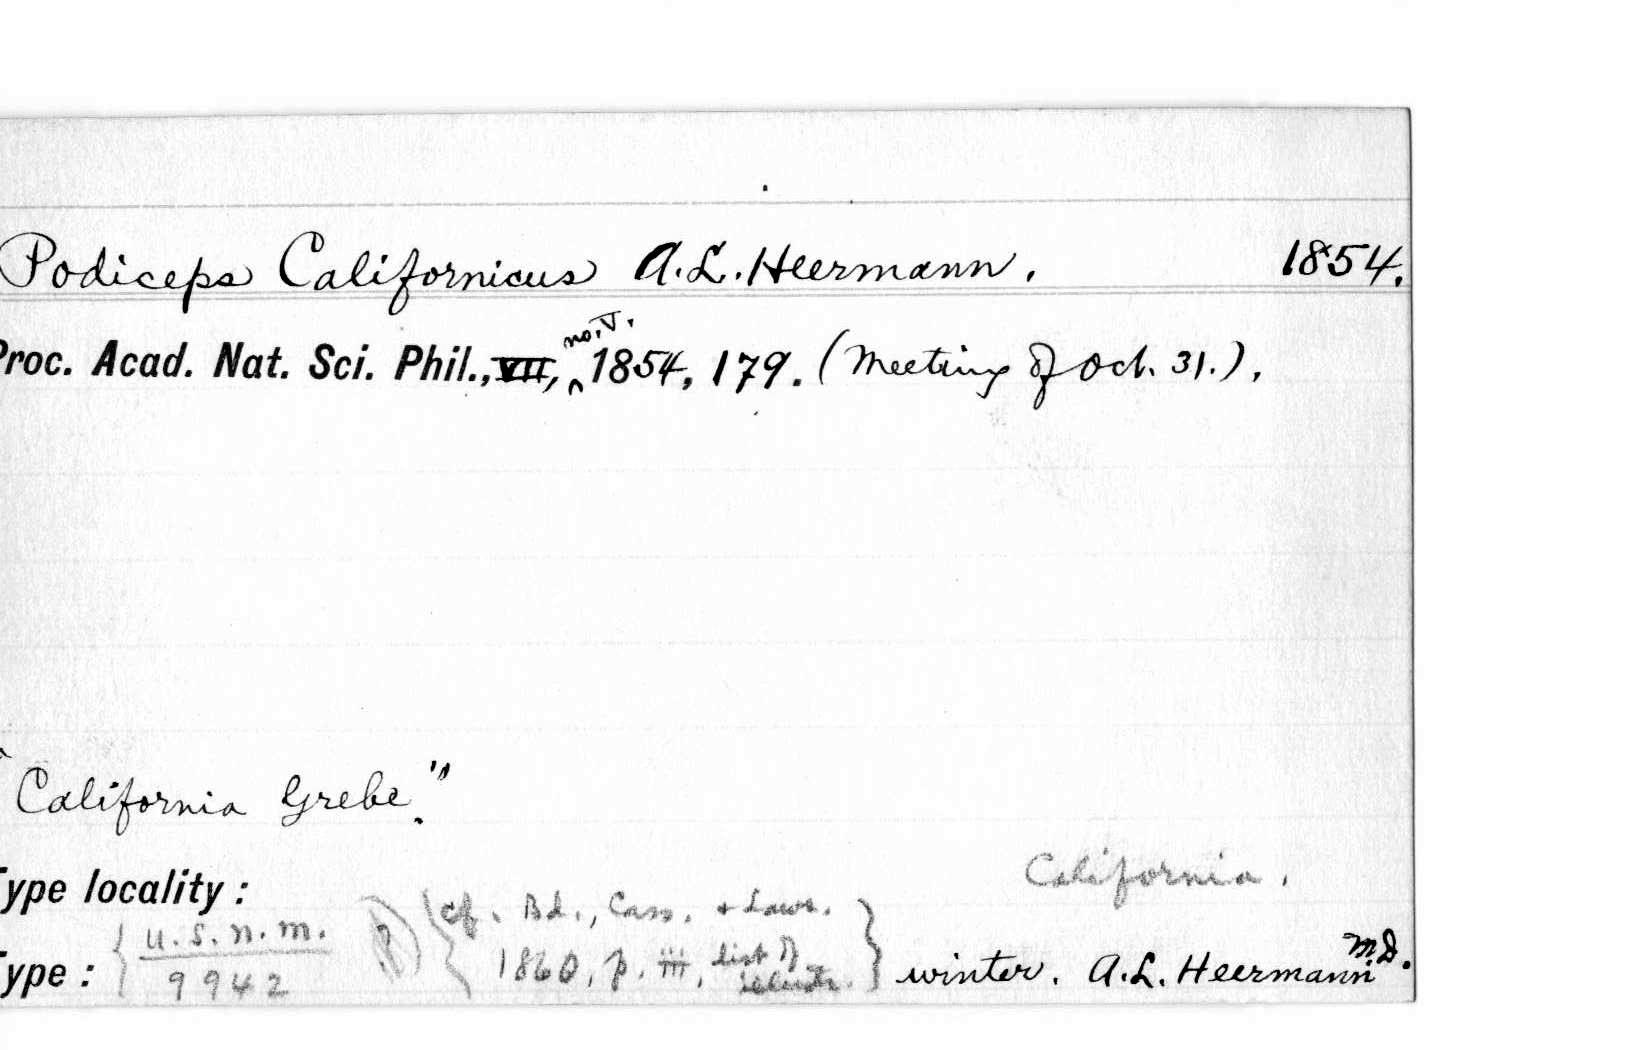 Podiceps Californicus A.L. Heermann. 1854.
Proc. Acad. Nat. Sci. Phil., VII, no. V. 1854, 179. (Meeting of Oct. 31.),
"California Grebe."
Type locality: California.
Type: { U.S.N.M. 9942 (?) { cf. Bd., Cass. + Lawr. 1860, p. iii, list of illustr. } winter. A.L. Heermann M.D.